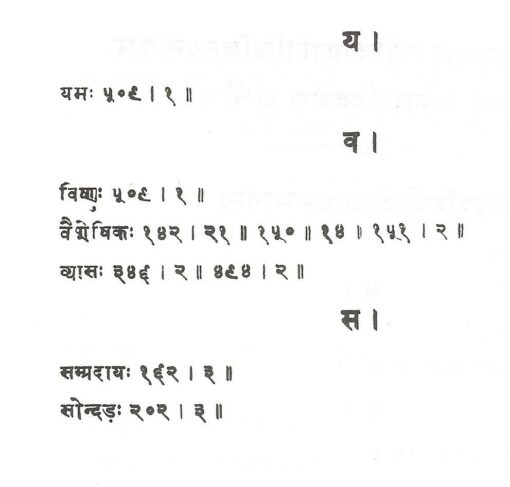 य ।
यमः ५०९ । १ ॥
व ।
विष्णुः ५०९ । १ ॥
वैशेषिकः १४२ । २१ ॥ १५० ॥ १४ ॥ १५१ । २ ॥
व्यासः ३४६ । २ ॥ ४९४ । २ ॥
स ।
सम्प्रदायः १६२ । ३ ॥
सोन्दडः २०२ । ३ ॥